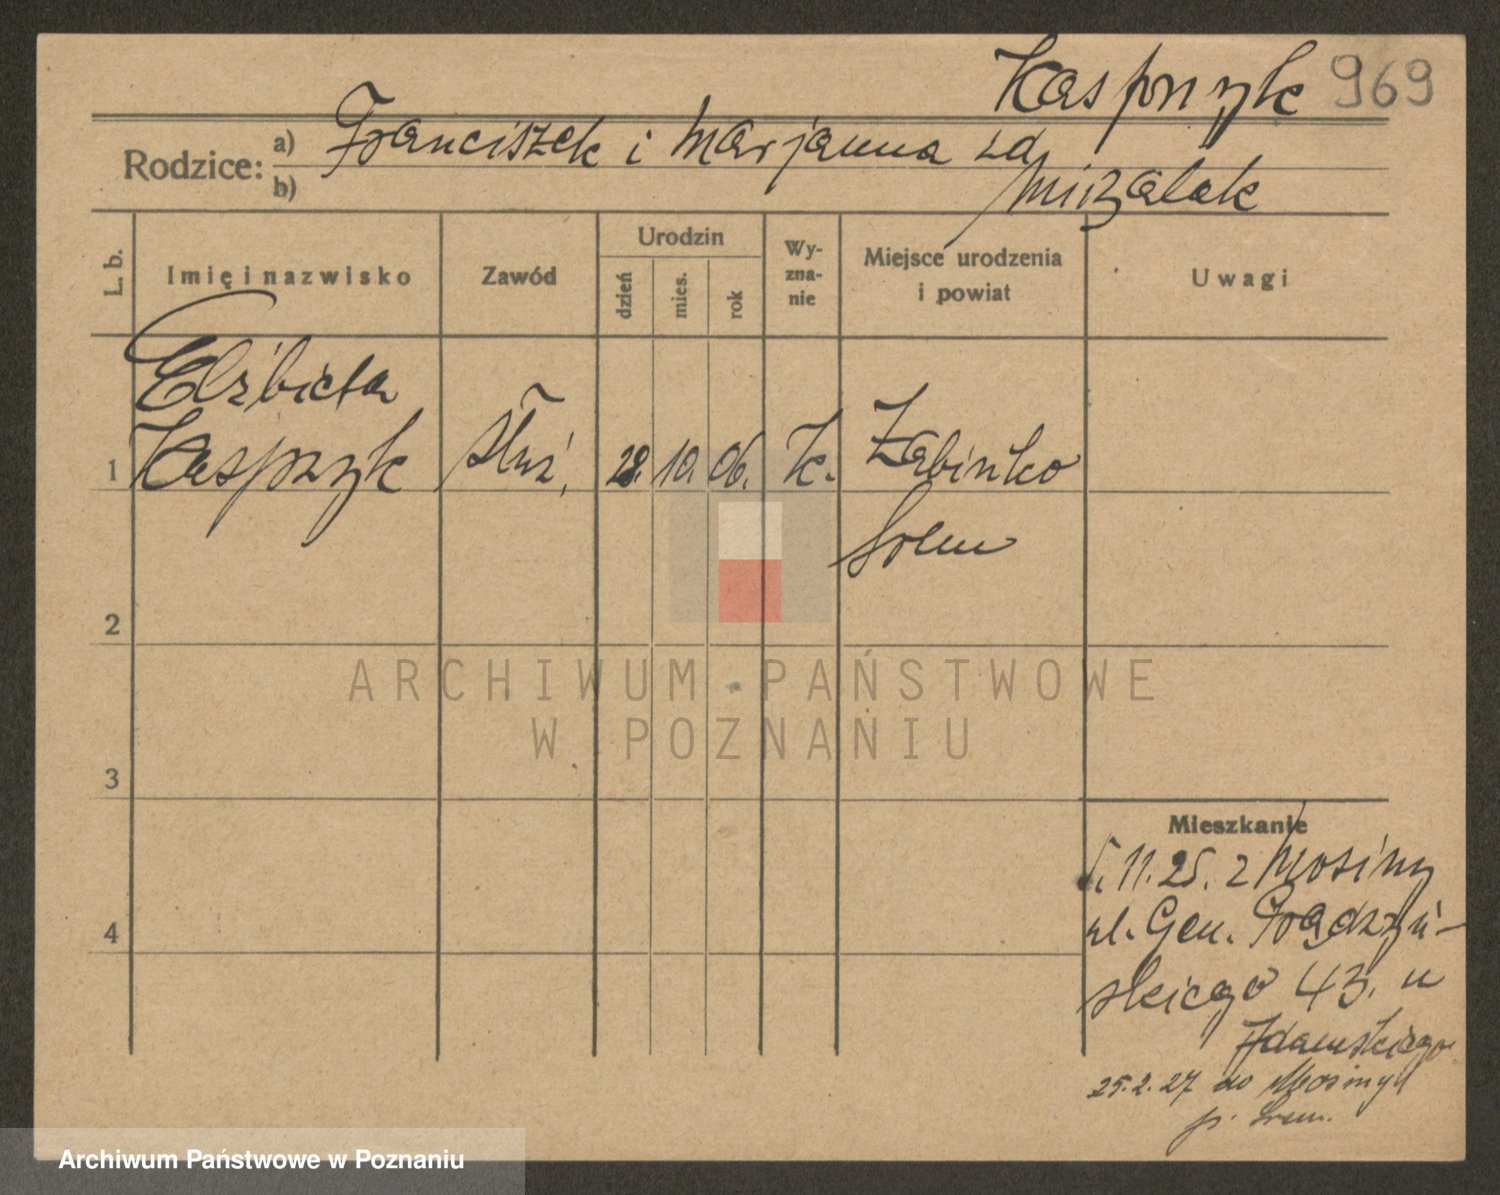 Kasprzyk 969
Rodzice: a) Franciszek i Marjanna zd
b) Mizalak
L. b.
Imię i nazwisko
Zawód
Urodzin
dzień
mies.
rok
Wy-
zna-
nie
Miejsce urodzenia
i powiat
Uwagi
Elżbieta
1 Kasprzyk służ. 28. 10. 06. k. Żabinko
Śrem
2
ARCHIWUM PAŃSTWOWE
W POZNANIU
3
4
Mieszkanie
5. 11. 25. z Mosiny
ul. Gen. Prądzyń-
skiego 43. u
Adamskiego
25.2.27 do Mosiny
p. Śrem.
Archiwum Państwowe w Poznaniu